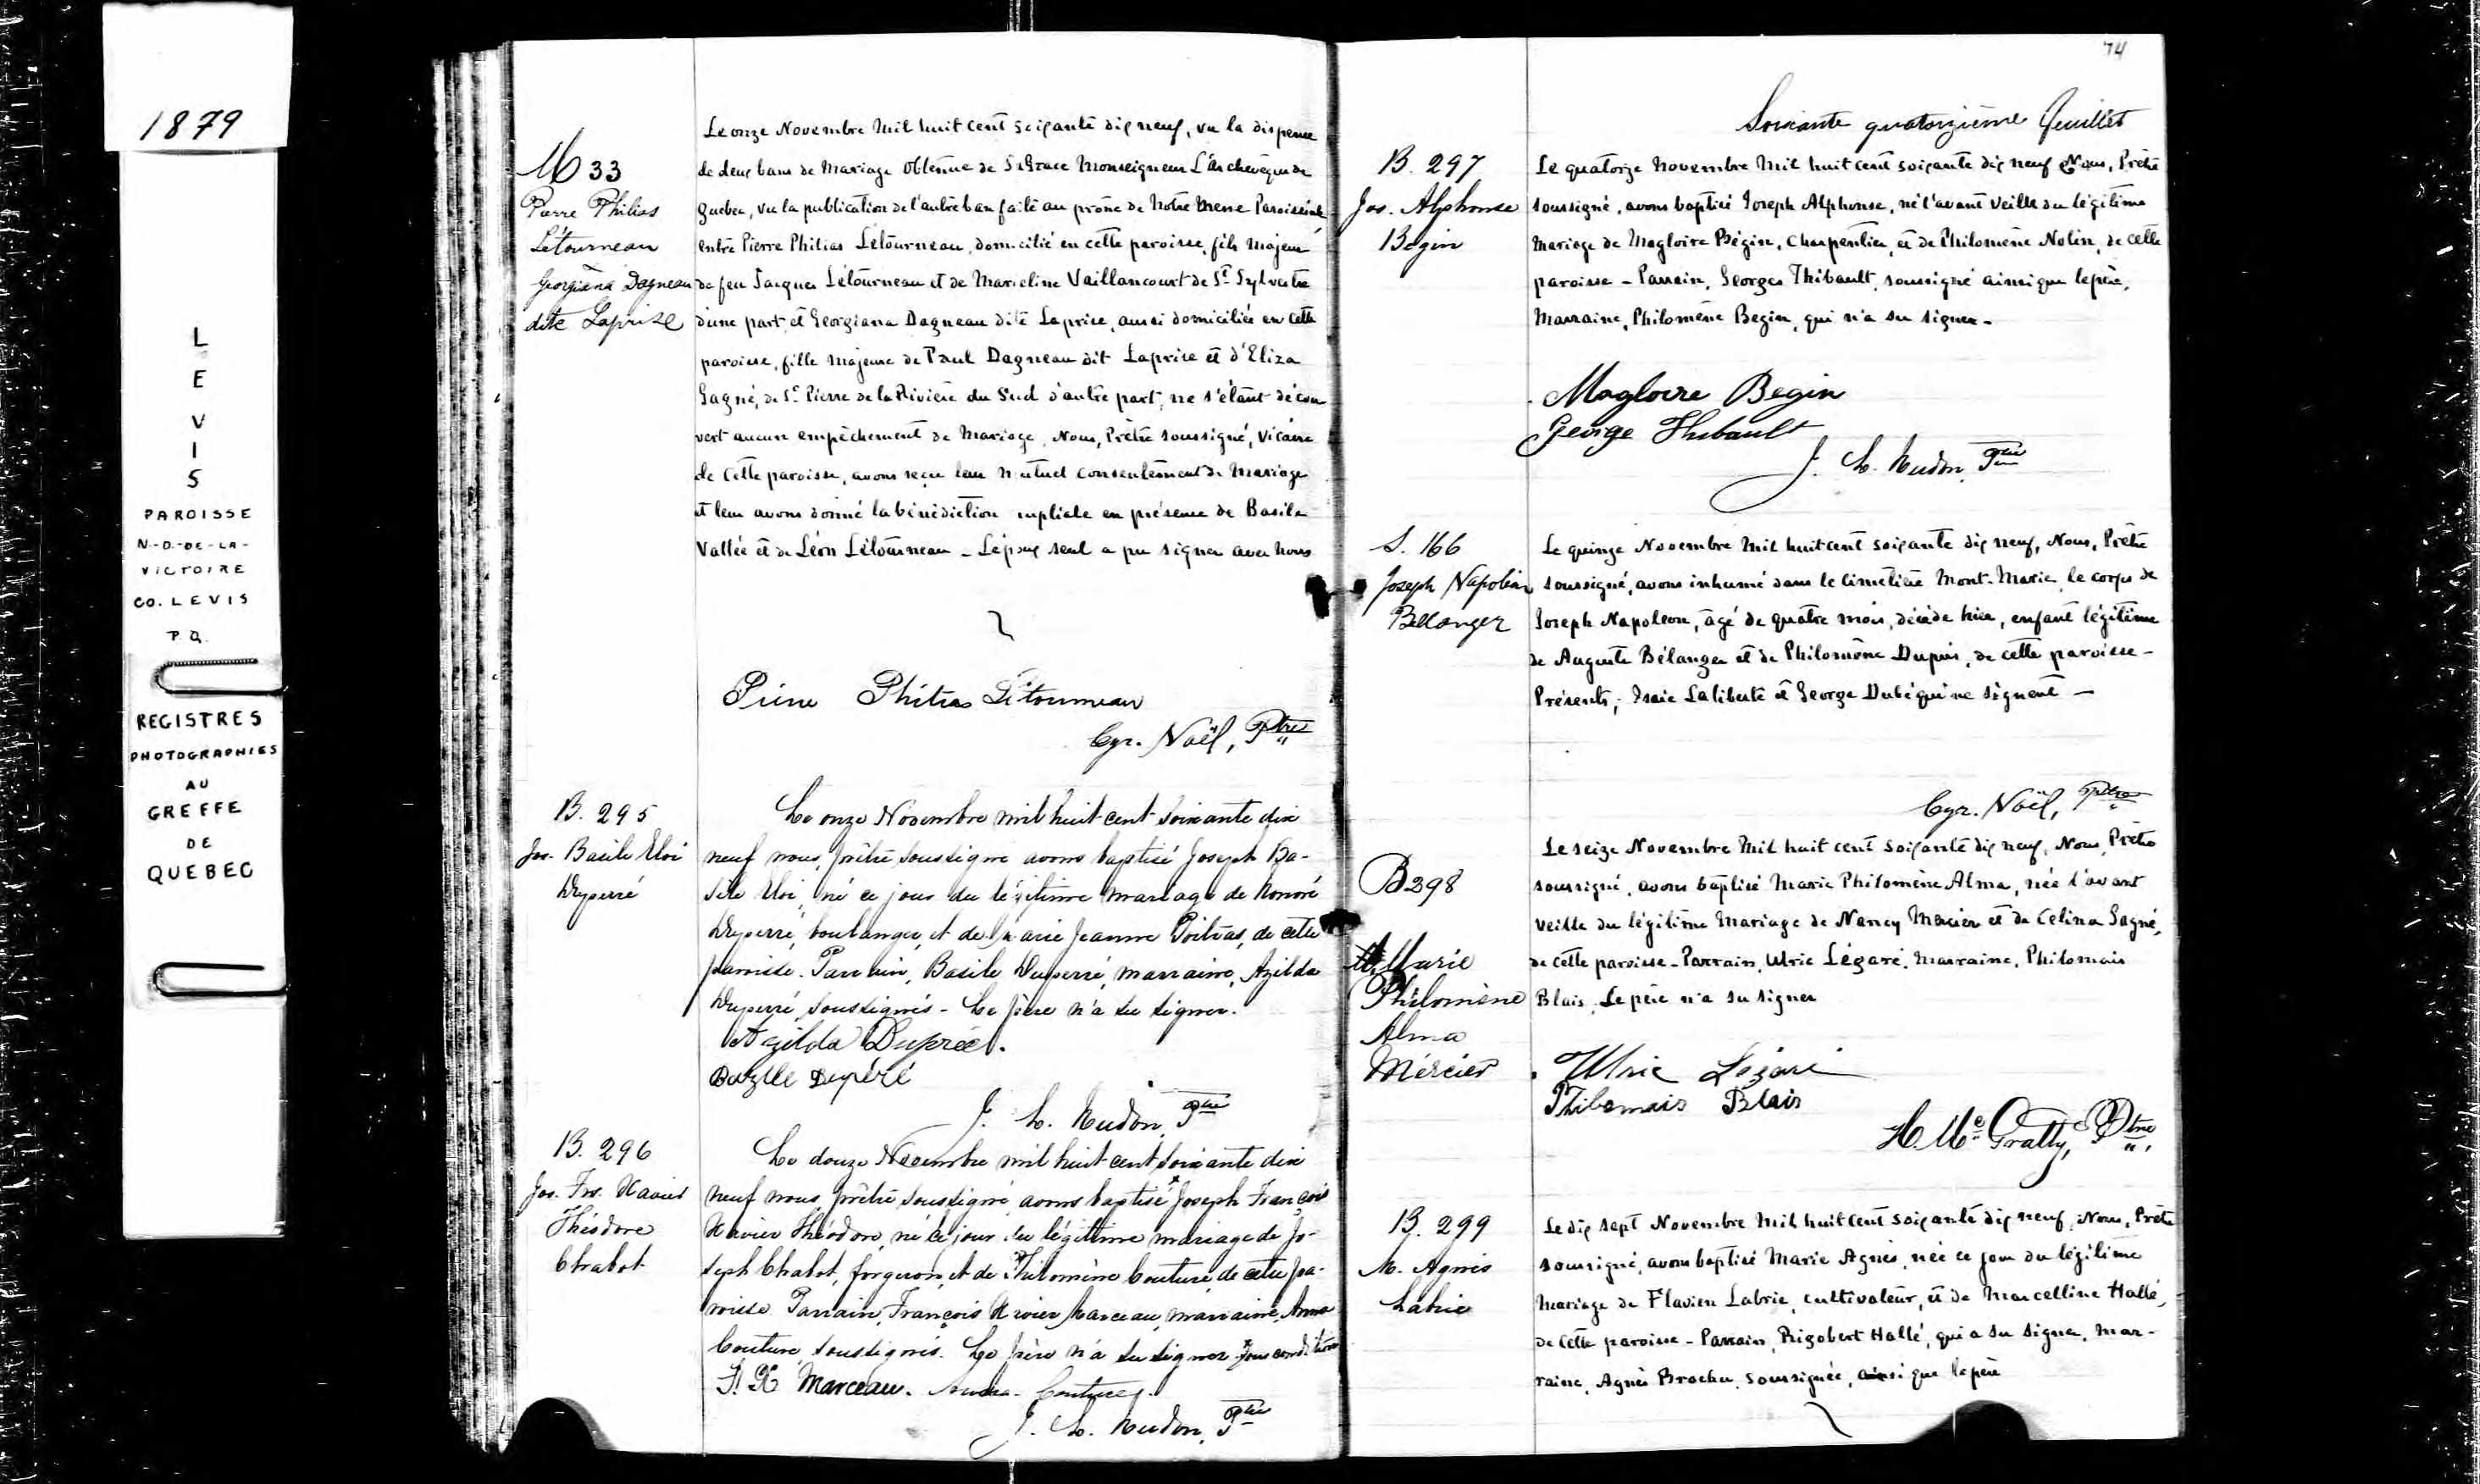 1879
L
E
V
I
S
PAROISSE
N.-D.-DE-LA-
VICTOIRE
CO. LEVIS
P.Q.
REGISTRES
PHOTOGRAPHIES
AU
GREFFE
DE
QUEBEC
M 33
Pierre Philias
Létourneau
Georgiana Dagneau
dite Laprise
Le onze Novembre Mil huit cent soixante dix neuf, vu la dispense
de deux bans de Mariage obtenue de Sa Grace Monseigneur L'Archevêque de
Quebec, vu la publication de l'autre ban faite au prône de Notre Messe Paroissiale
entre Pierre Philias Létourneau, domicilié en cette paroisse, fils majeur
de feu Jacques Létourneau et de Marceline Vaillancourt de St Sylvestre
d'une part, et Georgiana Dagneau dite Laprise, aussi domiciliée en cette
paroisse, fille majeure de Paul Dagneau dit Laprise et d'Eliza
Gagné, de St Pierre de la Rivière du Sud d'autre part, ne s'étant décou
vert aucun empêchement de Mariage, Nous, Prêtre soussigné, Vicaire
de cette paroisse, avons reçu leur mutuel consentement de Mariage
et leur avons donné la bénédiction nuptiale en présence de Basile
Vallée et de Léon Létourneau - L'époux seul a pu signer avec nous
Pierre Philias Létourneau
Cyr. Noël, Ptre
B. 295
Jos. Basile Eloi
Duperré
Le onze Novembre mil huit cent soixante dix
neuf nous, prêtre soussigné avons baptisé Joseph Ba-
sile Eloi, né ce jour du légitime mariage de Honoré
Duperré, boulanger, et de Marie Jeanne Poitras, de cette
paroisse. Parrain, Basile Duperré, marraine, Azilda
Duperré soussignés - Le père n'a su signer.
Azilda Duprée.
Bazile Dupéré
J. L. Hudon, Ptre
B. 296
Jos. Frs. Xavier
Théodore
Chabot
Le douze Novembre mil huit cent soixante dix
neuf nous, prêtre soussigné, avons baptisé* Joseph François
Xavier Théodore, né ce jour du légitime mariage de Jo-
seph Chabot, forgeron, et de Philomène Couture, de cette pa-
roisse. Parrain, François Xavier Marceau, marraine, Anna
Couture, soussignés. Le père n'a su signer. *sous condition
F. X Marceau. Anna Couture
J. L. Hudon, Ptre
74
Soixante quatorzième feuillet
B. 297
Jos. Alphonse
Bégin
Le quatorze Novembre Mil huit cent soixante dix neuf Nous, Prêtre
soussigné, avons baptisé Joseph Alphonse, né l'avant veille du légitime
Mariage de Magloire Bégin, Charpentier, et de Philomène Nolin, de cette
paroisse - Parrain, Georges Thibault, soussigné ainsi que le père,
Marraine, Philomène Begin, qui n'a su signer -
Magloire Begin
George Thibault
J. L. Hudon, Ptre
S. 166
Joseph Napoléon
Bélanger
Le quinze Novembre Mil huit cent soixante dix neuf, Nous, Prêtre
soussigné, avons inhumé dans le Cimetière Mont-Marie, le corps de
Joseph Napoléon, âgé de quatre mois, décédé hier, enfant légitime
de Auguste Bélanger et de Philomène Dupuis, de cette paroisse -
Présents; Isaie Laliberté et George Dubé qui ne signent -
Cyr. Noël, Ptre
B 298
M. Marie
Philomène
Alma
Mercier
Le seize Novembre Mil huit cent soixante dix neuf, Nous, Prêtre
soussigné, avons baptisé Marie Philomène Alma, née l'avant
veille du légitime Mariage de Nancy Mercier et de Celina Gagné,
de cette paroisse - Parrain, Ulric Légaré, Marraine, Philomais
Blais, Le père n'a su signer
Ulric Légaré
Philomais Blais
H. Mc Gratty, Ptre
B. 299
M. Agnès
Labrie
Le dix sept Novembre Mil huit cent soixante dix neuf, Nous, Prêtre
soussigné, avons baptisé Marie Agnès, née ce jour du légitime
Mariage de Flavien Labrie, cultivateur, et de Marcelline Hallé,
de cette paroisse - Parrain, Rigobert Hallé, qui a su signer, Mar-
raine, Agnès Brochu, soussignée, ainsi que le père